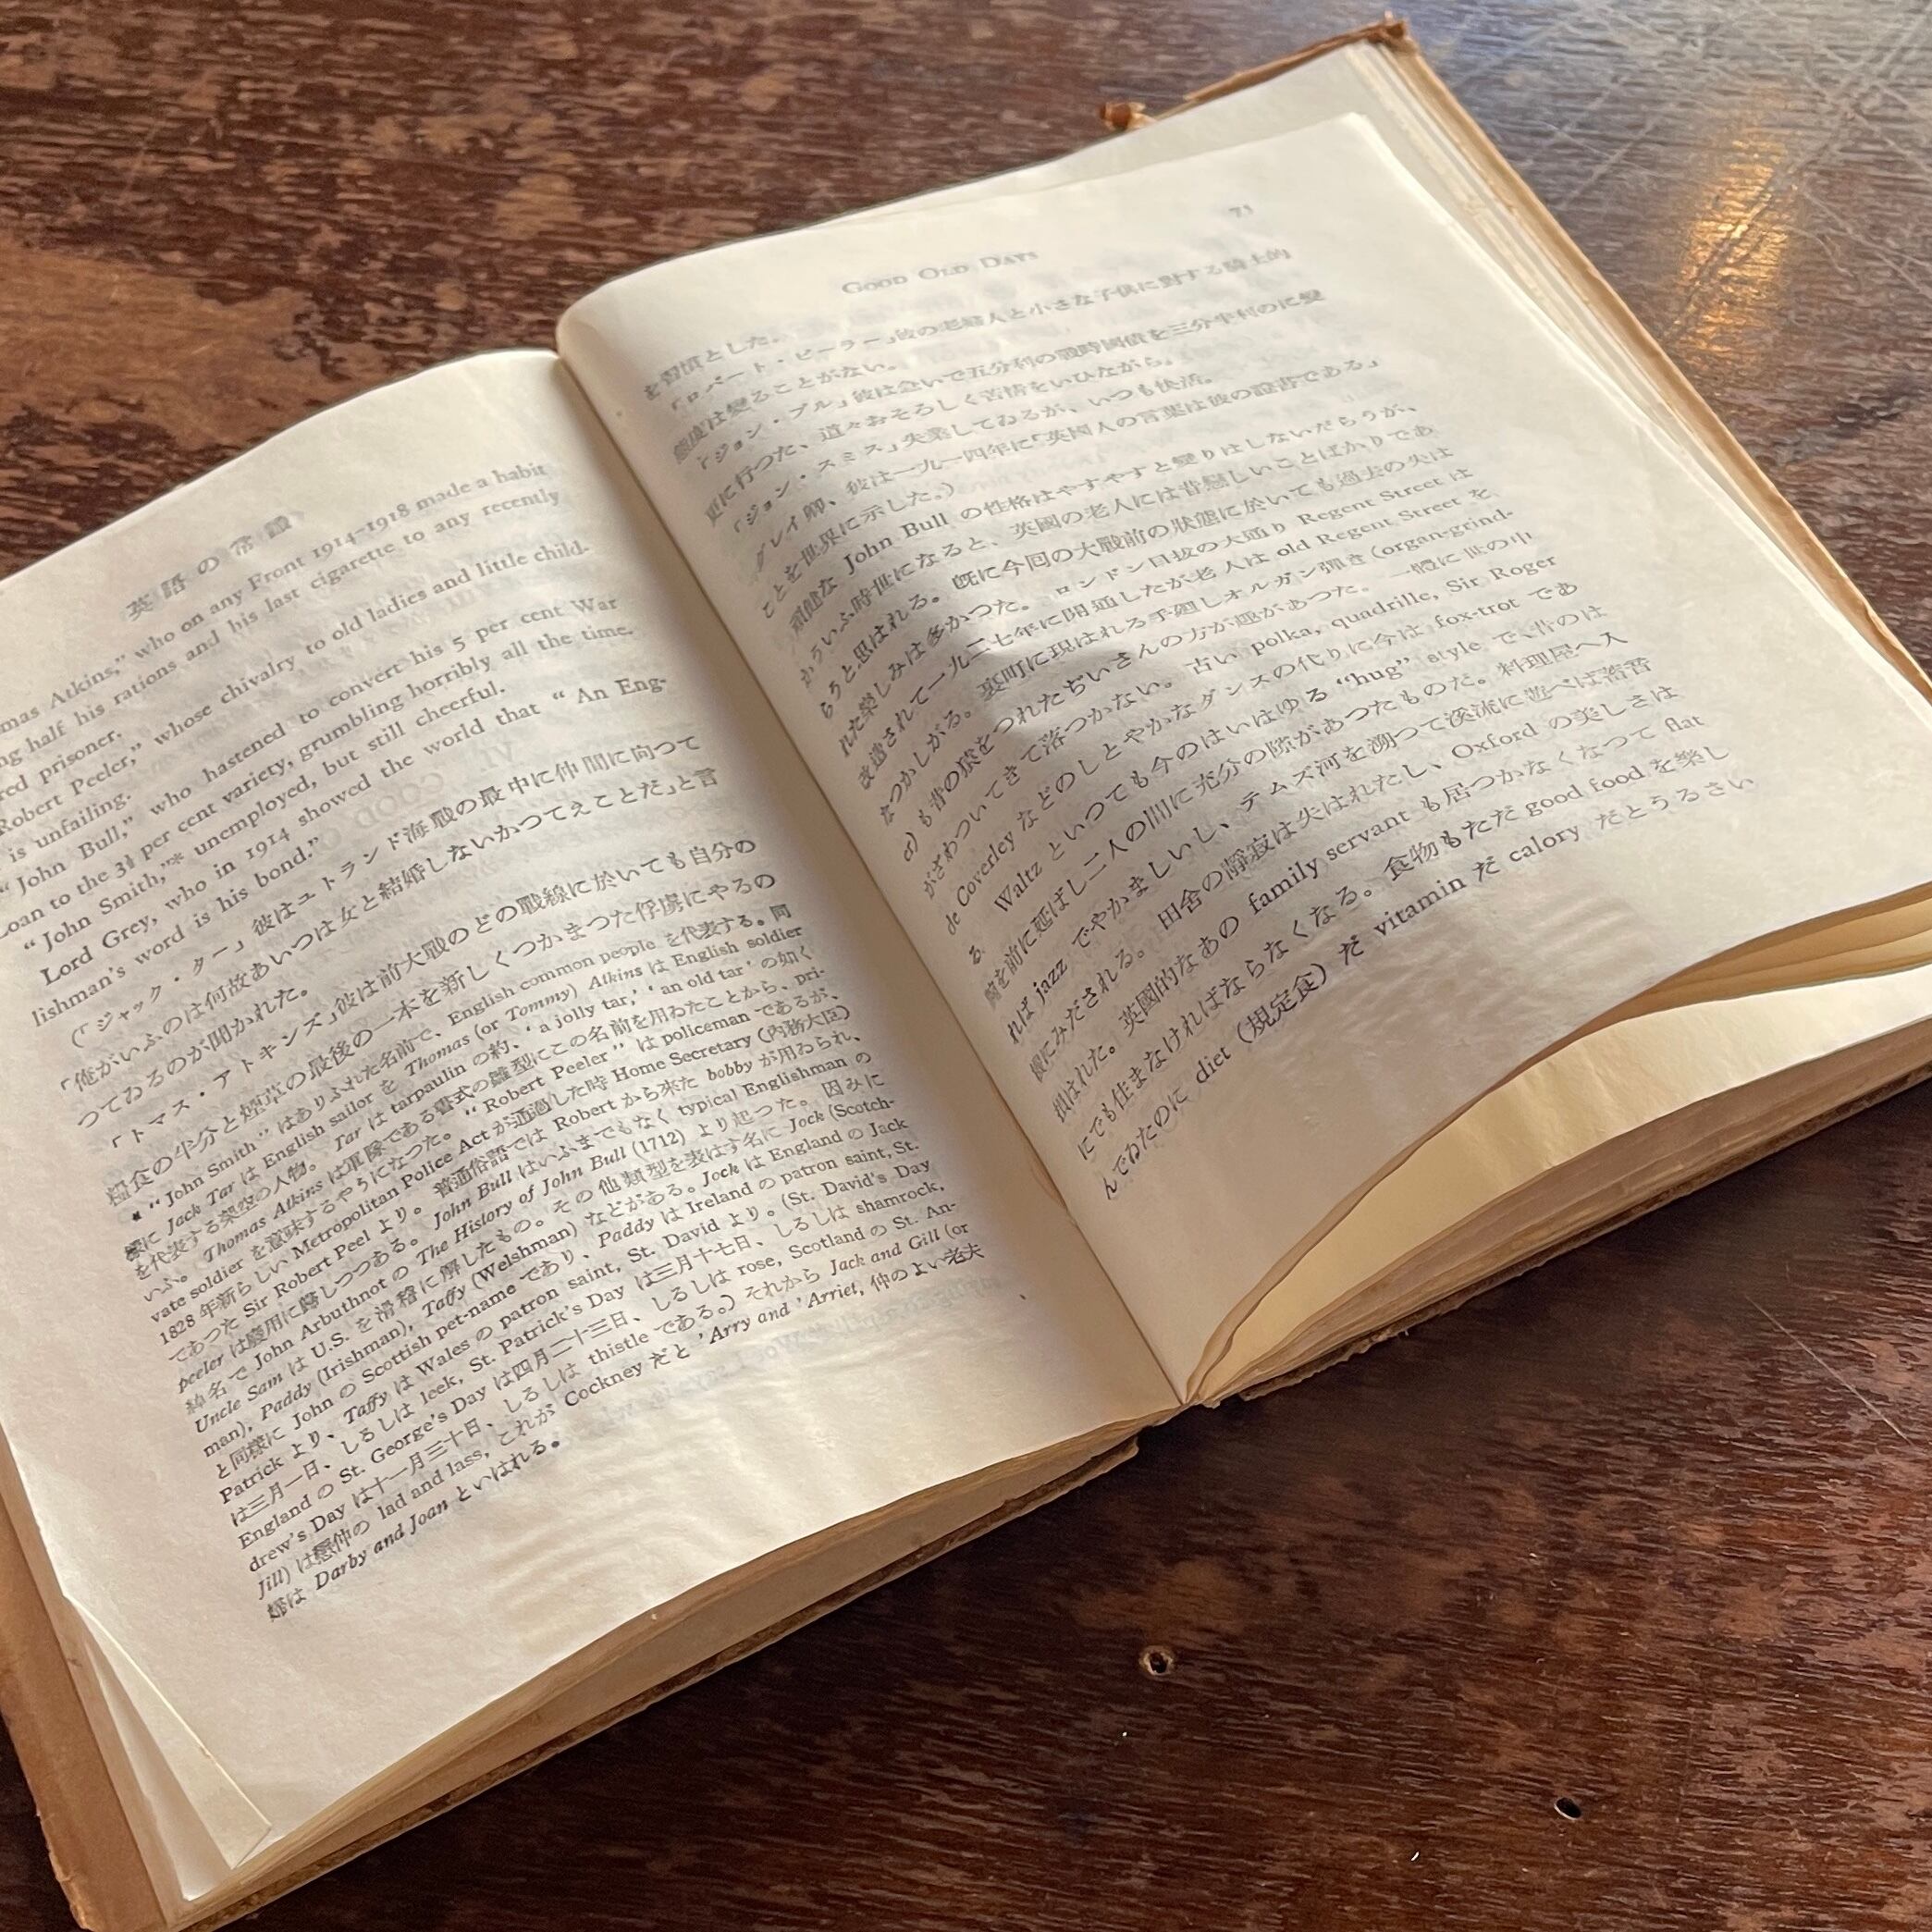 英語の常識
mas Atkins," who on any Front 1914–1918 made a habit
ng half his rations and his last cigarette to any recently
red prisoner.
Robert Peeler," whose chivalry to old ladies and little child-
is unfailing.
"John Bull," who hastened to convert his 5 per cent War
Loan to the 3½ per cent variety, grumbling horribly all the time.
"John Smith,"* unemployed, but still cheerful.
Lord Grey, who in 1914 showed the world that "An Eng-
lishman's word is his bond."
(「ジャック・ター」彼はユトランド海戰の最中に仲間に向つて
「俺がいふのは何故あいつは女と結婚しないかつてえことだ」と言
つてゐるのが聞かれた。
「トマス・アトキンス」彼は前大戰のどの戰線に於いても自分の
糧食の半分と煙草の最後の一本を新しくつかまつた俘虜にやるの
* "John Smith" はありふれた名前で、English common people を代表する。同
樣に Jack Tar は English sailor を Thomas (or Tommy) Atkins は English soldier
を代表する架空の人物。Tar は tarpaulin の約、'a jolly tar,' 'an old tar' の如く
いふ。Thomas Atkins は軍隊である書式の雛型にこの名前を用ゐたことから、pri-
vate soldier を意味するやうになつた。"Robert Peeler" は policeman であるが、
1828 年新らしい Metropolitan Police Act が通過した時 Home Secretary (内務大臣)
であつた Sir Robert Peel より。普通俗語では Robert から來た bobby が用ゐられ、
peeler は廢用に歸しつつある。John Bull はいふまでもなく typical Englishman の
綽名で John Arbuthnot の The History of John Bull (1712) より起つた。因みに
Uncle Sam は U.S. を滑稽に解したもの。その他類型を表はす名に Jock (Scotch-
man), Paddy (Irishman), Taffy (Welshman) などがある。Jock は England の Jack
と同樣に John の Scottish pet-name であり、Paddy は Ireland の patron saint, St.
Patrick より、Taffy は Wales の patron saint, St. David より。(St. David's Day
は三月一日、しるしは leek, St. Patrick's Day は三月十七日、しるしは shamrock,
England の St. George's Day は四月二十三日、しるしは rose, Scotland の St. An-
drew's Day は十一月三十日、しるしは thistle である。) それから Jack and Gill (or
Jill) は戀仲の lad and lass, これが Cockney だと 'Arry and 'Arriet, 仲のよい老夫
婦は Darby and Joan といはれる。
Good Old Days 71
を習慣とした。
「ロバート・ピーラー」彼の老婦人と小さな子供に對する騎士的
態度は變ることがない。
「ジョン・ブル」彼は急いで五分利の戰時國債を三分半利のに變
更に行つた、道々おそろしく苦情をいひながら。
「ジョン・スミス」失業してゐるが、いつも快活。
グレイ卿、彼は一九一四年に「英國人の言葉は彼の證書である」
ことを世界に示した。)
頑固な John Bull の性格はやすやすと變りはしないだらうが、
かういふ時世になると、英國の老人には昔戀しいことばかりであ
らうと思はれる。既に今囘の大戰前の狀態に於いても過去の失は
れた樂しみは多かつた。ロンドン目拔の大通り Regent Street は
改造されて一九二七年に開通したが老人は old Regent Street を
なつかしがる。裏町に現はれる手廻しオルガン彈き (organ-grind-
er) も昔の猿をつれたぢいさんの方が趣があつた。一體に世の中
がざわついてきて落つかない。古い polka, quadrille, Sir Roger
de Coverley などのしとやかなダンスの代りに今は fox-trot であ
る。Waltz といつても今のはいはゆる "hug" style で、昔のは
腕を前に延ばし二人の間に充分の隙があつたものだ。料理屋へ入
れば jazz でやかましいし、テムズ河を溯つて溪流に遊べば蓄音
機にみだされる。田舍の靜寂は失はれたし、Oxford の美しさは
損はれた。英國的なあの family servant も居つかなくなつて flat
にでも住まなければならなくなる。食物もただ good food を樂し
んでゐたのに diet (規定食) だ vitamin だ calory だとうるさい